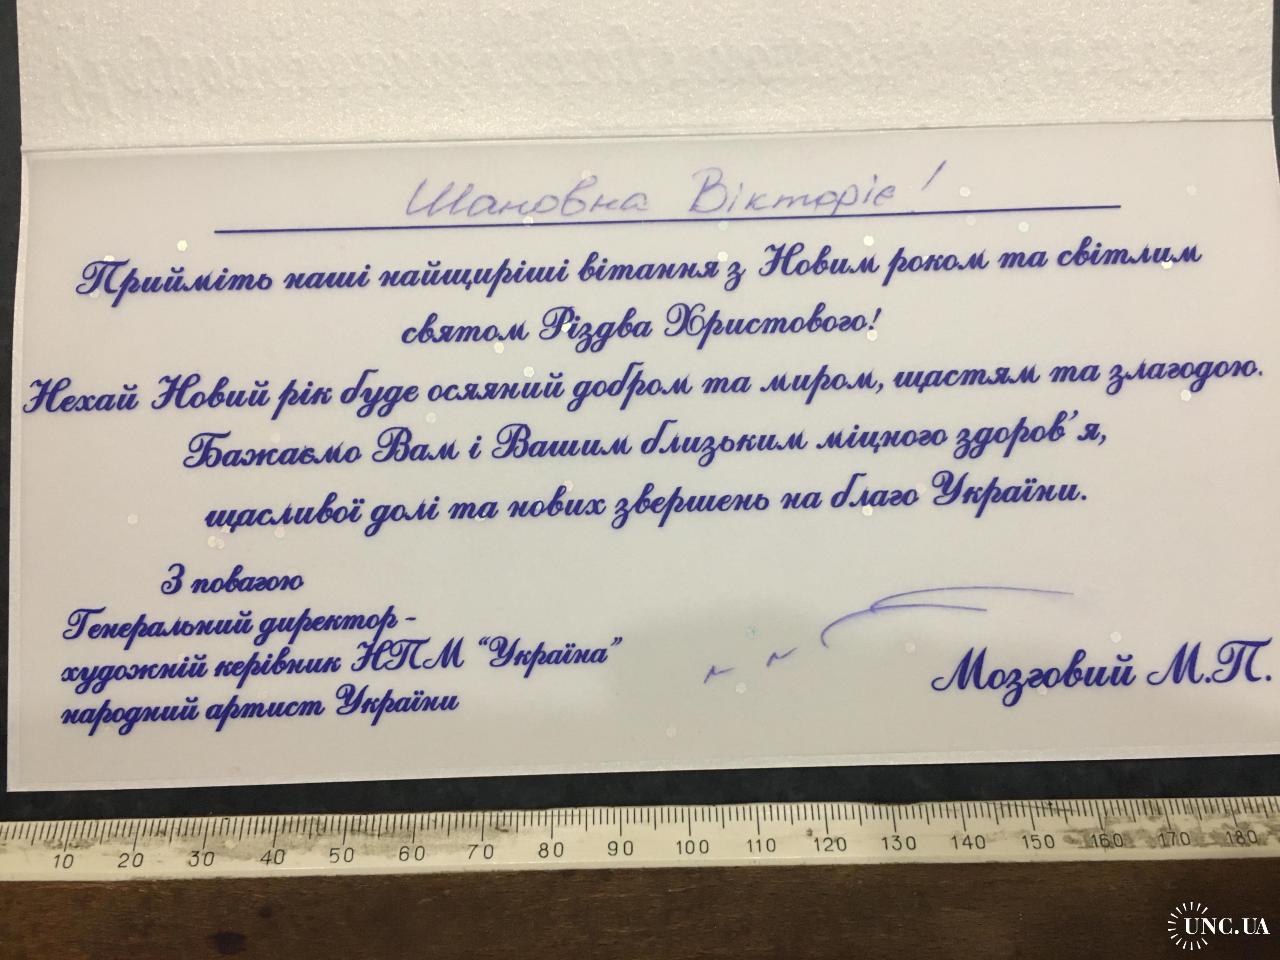 Шановна Вікторіє!
Прийміть наші найщиріші вітання з Новим роком та світлим
святом Різдва Христового!
Нехай Новий рік буде осяяний добром та миром, щастям та злагодою.
Бажаємо Вам і Вашим близьким міцного здоров'я,
щасливої долі та нових звершень на благо України.
З повагою
Генеральний директор -
художній керівник НПМ "Україна"
народний артист України
Мозговий М.П.
10 20 30 40 50 60 70 80 90 100 110 120 130 140 150 160 170 180
UNC.UA